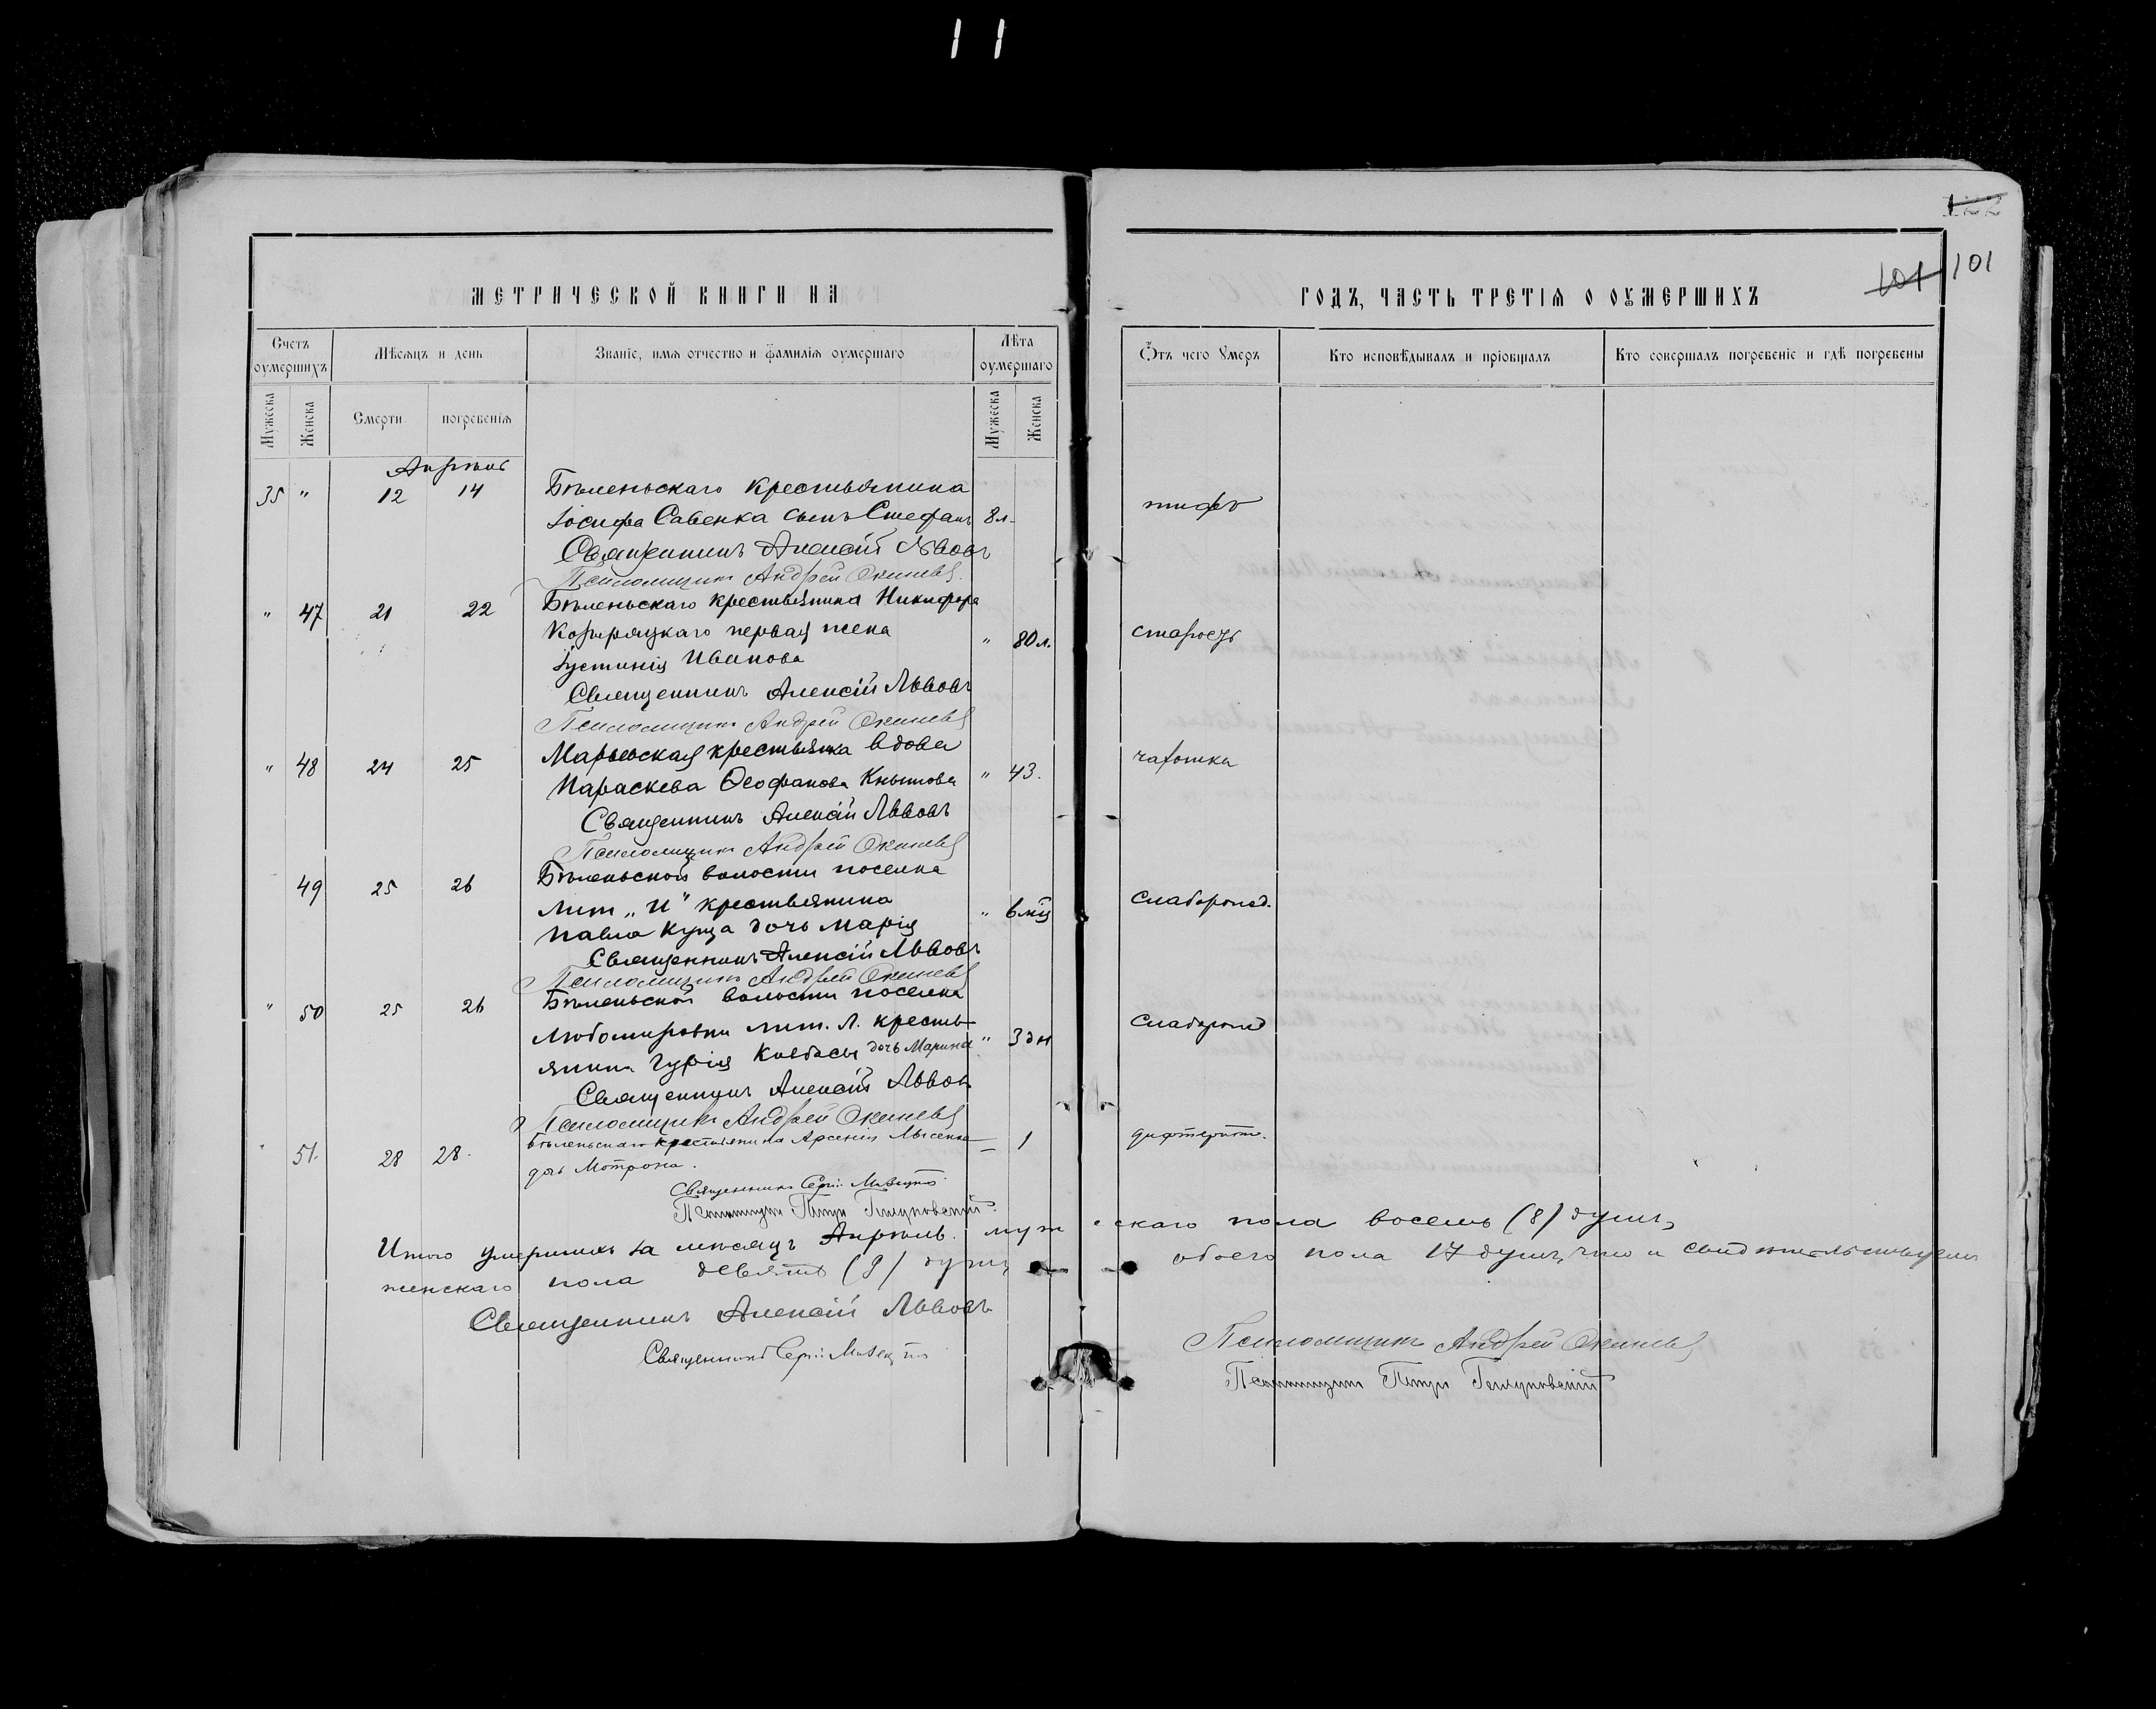 11
101
101
МЕТРИЧЕСКОЙ КНИГИ НА
ГОДЪ, ЧАСТЬ ТРЕТІЯ О ОУМЕРШИХЪ
Счетъ оумершихъ
Мѣсяцъ и день
Званіе, имя отчество и фамилія оумершаго
Лѣта оумершаго
Отъ чего Умеръ
Кто исповѣдывалъ и пріобщалъ
Кто совершалъ погребеніе и гдѣ погребены
Мужеска
Женска
Смерти
погребенія
Мужеска
Женска
Апрѣль
35 " 12 14 Бѣленьскаго крестьянина
Іосифа Савенка сынъ Стефанъ 8 л. тифъ
Священникъ Алексій Львовъ
Псаломщикъ Андрей
" 47 21 22 Бѣленьскаго крестьянина Никифора
первая жена " 80 л. старость
Іустинія Иванова
Священникъ Алексій Львовъ
Псаломщикъ Андрей
" 48 24 25 Марьевская крестьянка вдова
Параскева Ѳеофанова " 43. чахотка
Священникъ Алексій Львовъ
Псаломщикъ Андрей
49 25 26 Бѣленьской волости поселка
Лит „И" крестьянина
Павла Куща дочь Марія " 6 мѣс слаборожд.
Священникъ Алексій Львовъ
Псаломщикъ Андрей
" 50 25 26 Бѣленьской волости поселка
Любомировки лит. Л. кресть-
янина Гурія Колбасы дочь Марина " 3 дн слаборожд
Священникъ Алексій Львовъ
Псаломщикъ Андрей
" 51. 28 28. Бѣленьскаго крестьянина Арсенія Лысенка — 1 дифтеритъ.
дочь Мотрона.
Священникъ Сергій
Псаломщикъ Петръ
Итого умершихъ за мѣсяцъ Апрѣль. мужескаго пола восемь (8) душъ,
женскаго пола девять (9) душъ обоего пола 17 душъ, что и свидѣтельствуемъ
Священникъ Алексій Львовъ
Псаломщикъ Андрей
Священникъ Сергій
Псаломщикъ Петръ